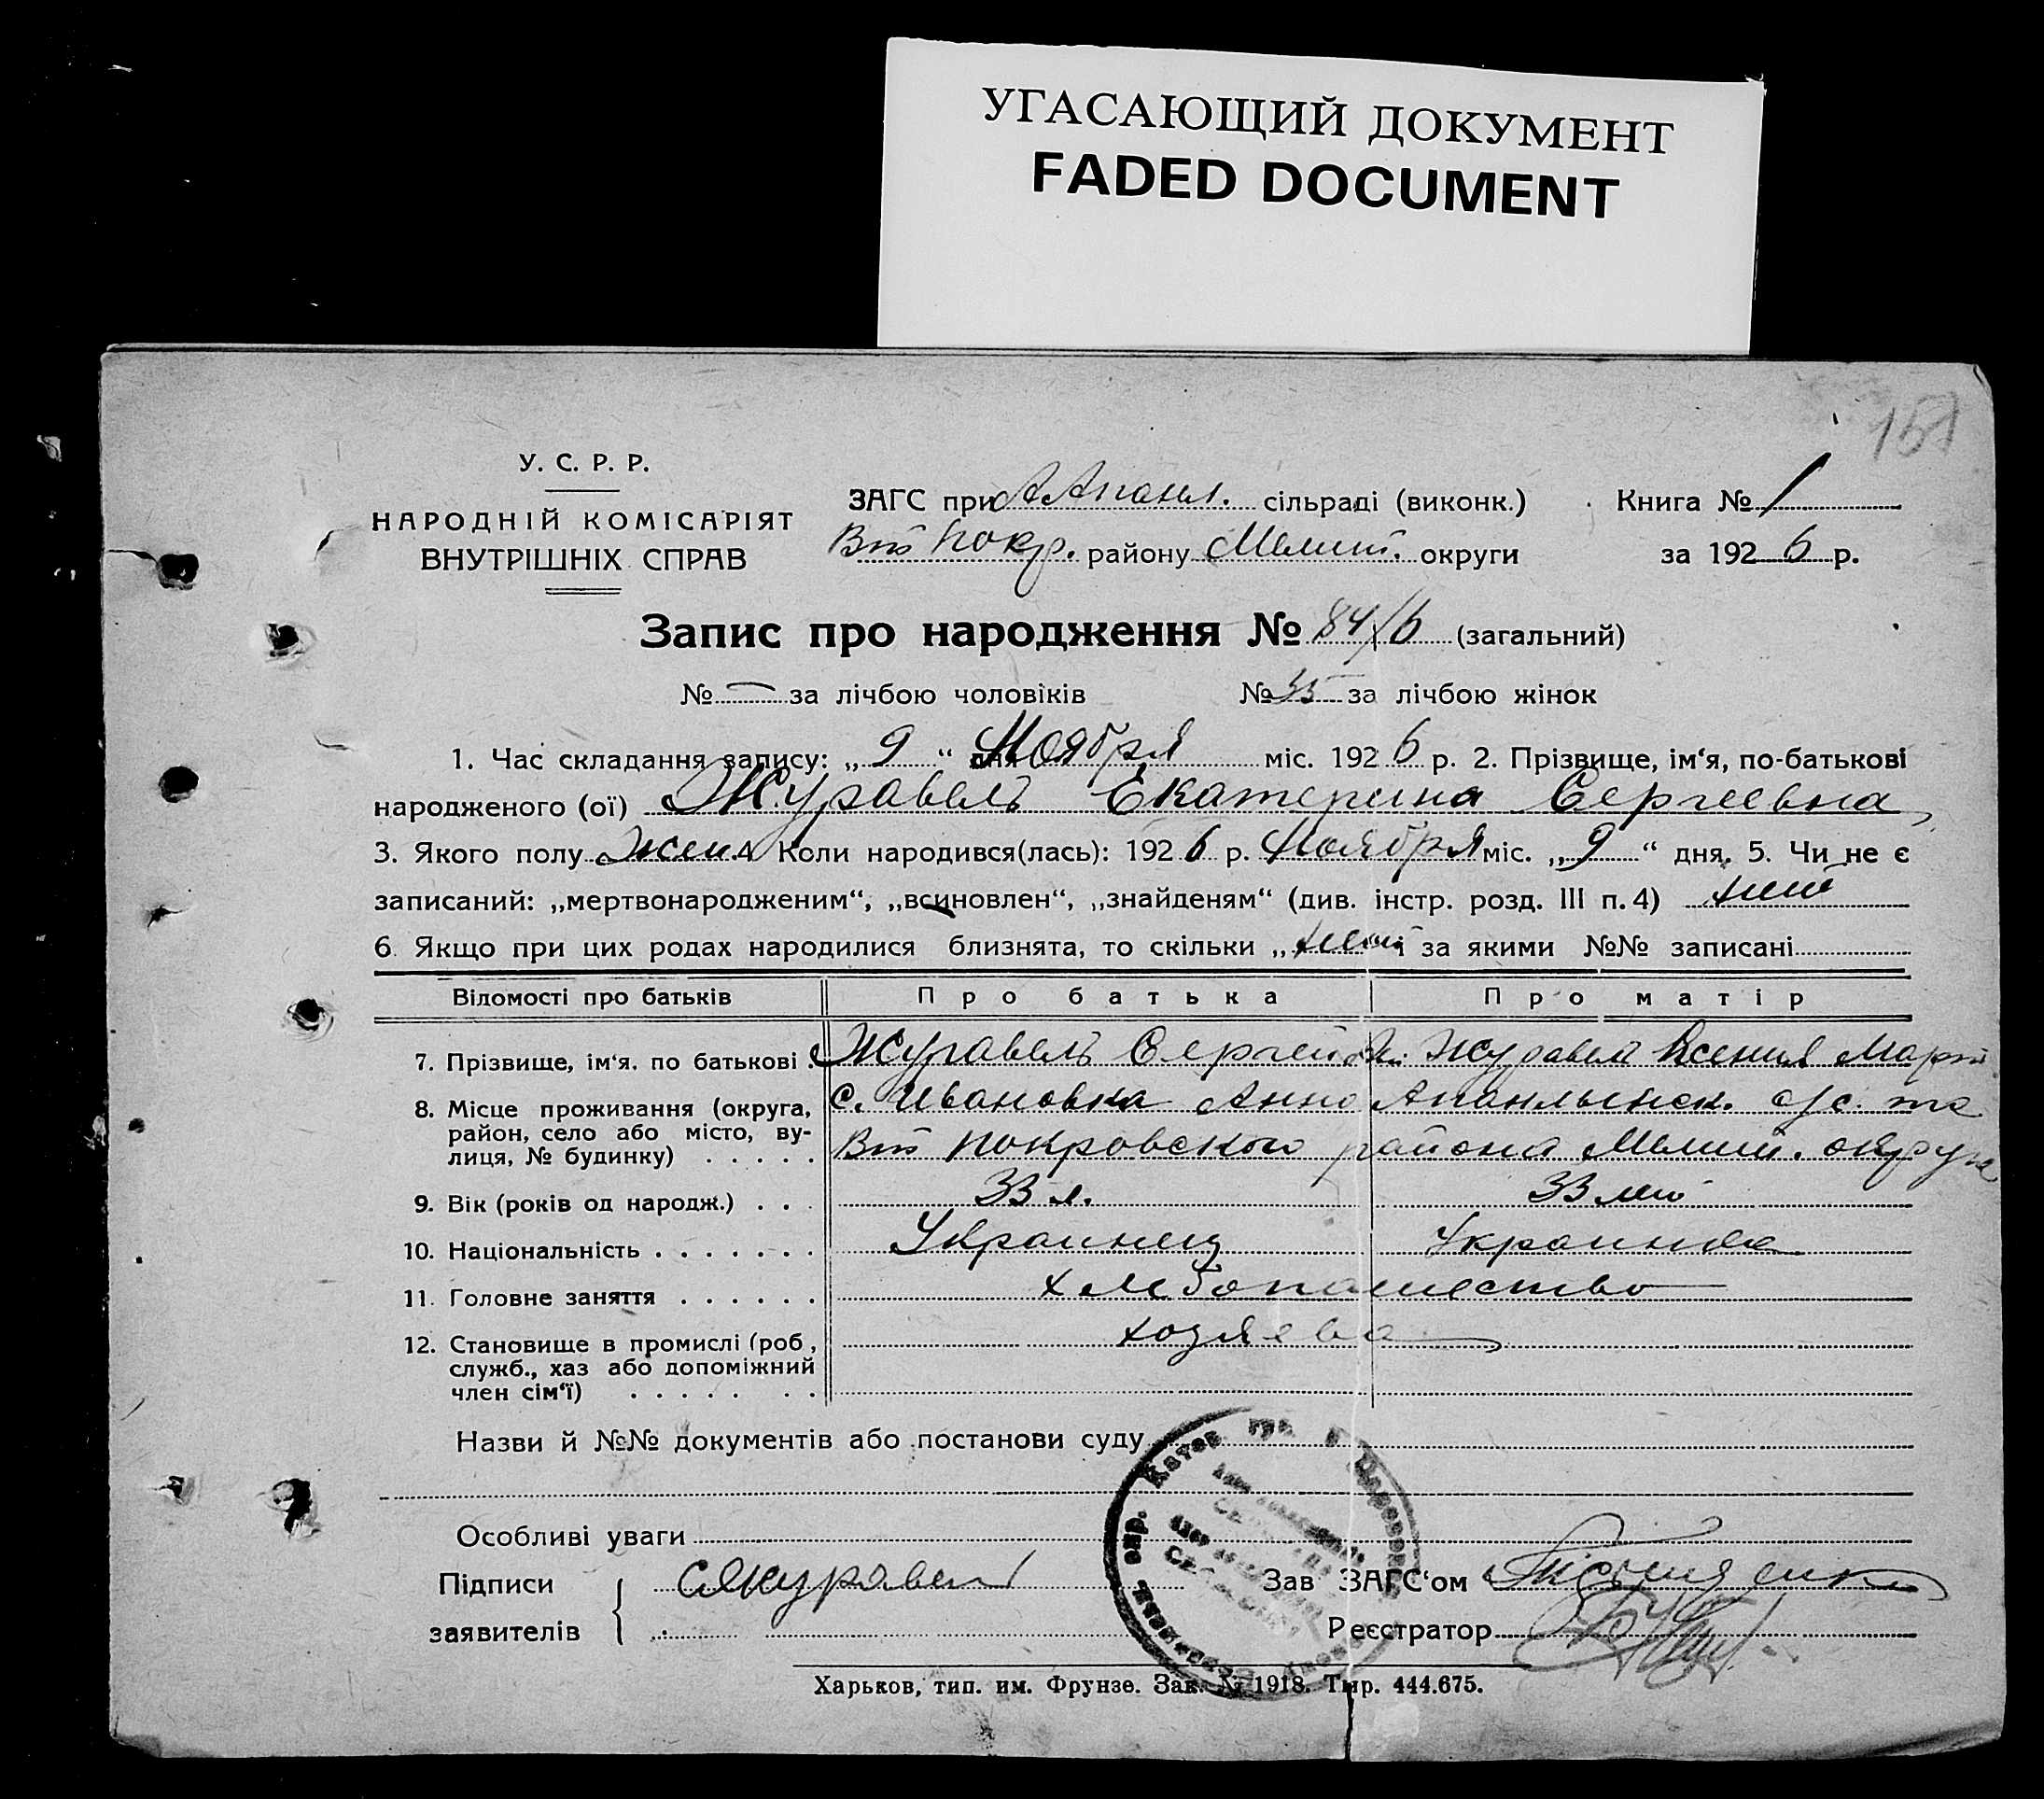 УГАСАЮЩИЙ ДОКУМЕНТ
FADED DOCUMENT
151
У. С. Р. Р.
НАРОДНІЙ КОМІСАРІЯТ
ВНУТРІШНІХ СПРАВ
ЗАГС при А Апанл. сільраді (виконк.)
Вт Покр. району Мелит. округи
Книга № 1
за 1926 р.
Запис про народження № 84/б (загальний)
№ — за лічбою чоловіків № 35 за лічбою жінок
1. Час складання запису: „9“ дня Ноября міс. 1926 р. 2. Прізвище, ім‘я, по-батькові
народженого (ої) Журавель Екатерина Сергеевна
3. Якого полу жен. 4 Коли народився(лась): 1926 р. Ноября міс. „9“ дня. 5. Чи не є
записаний: „мертвонародженим“, „всиновлен“, „знайденям“ (див. інстр. розд. III п. 4) нет
6. Якщо при цих родах народилися близнята, то скільки „нет“ і за якими №№ записані
Відомості про батьків Про батька Про матір
7. Прізвище, ім‘я. по батькові . Журавель Сергей Журавель Ксения Март
8. Місце проживання (округа, район, село або місто, вулиця, № будинку) . . . . . с. Ивановка Анно Апанлынск. с/с. та
Вт Покровского района Мелит. округи
9. Вік (років од народж.) . . . 33 л. 33 лет
10. Національність . . . . . . . Украинец Украинка
11. Головне заняття . . . . . . хлебопашество
12. Становище в промислі (роб, служб., хаз або допоміжний член сім‘ї) . . . . . . . хозяева
Назви й №№ документів або постанови суду
Особливі уваги
Підписи заявителів { СЖуравель
Зав ЗАГС‘ом
Реєстратор
Харьков, тип. им. Фрунзе. Зак. № 1918. Тир. 444.675.